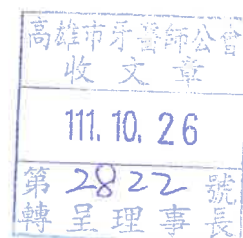 高雄市牙醫師公會
收文章
111.10.26
第2822號
轉呈理事長